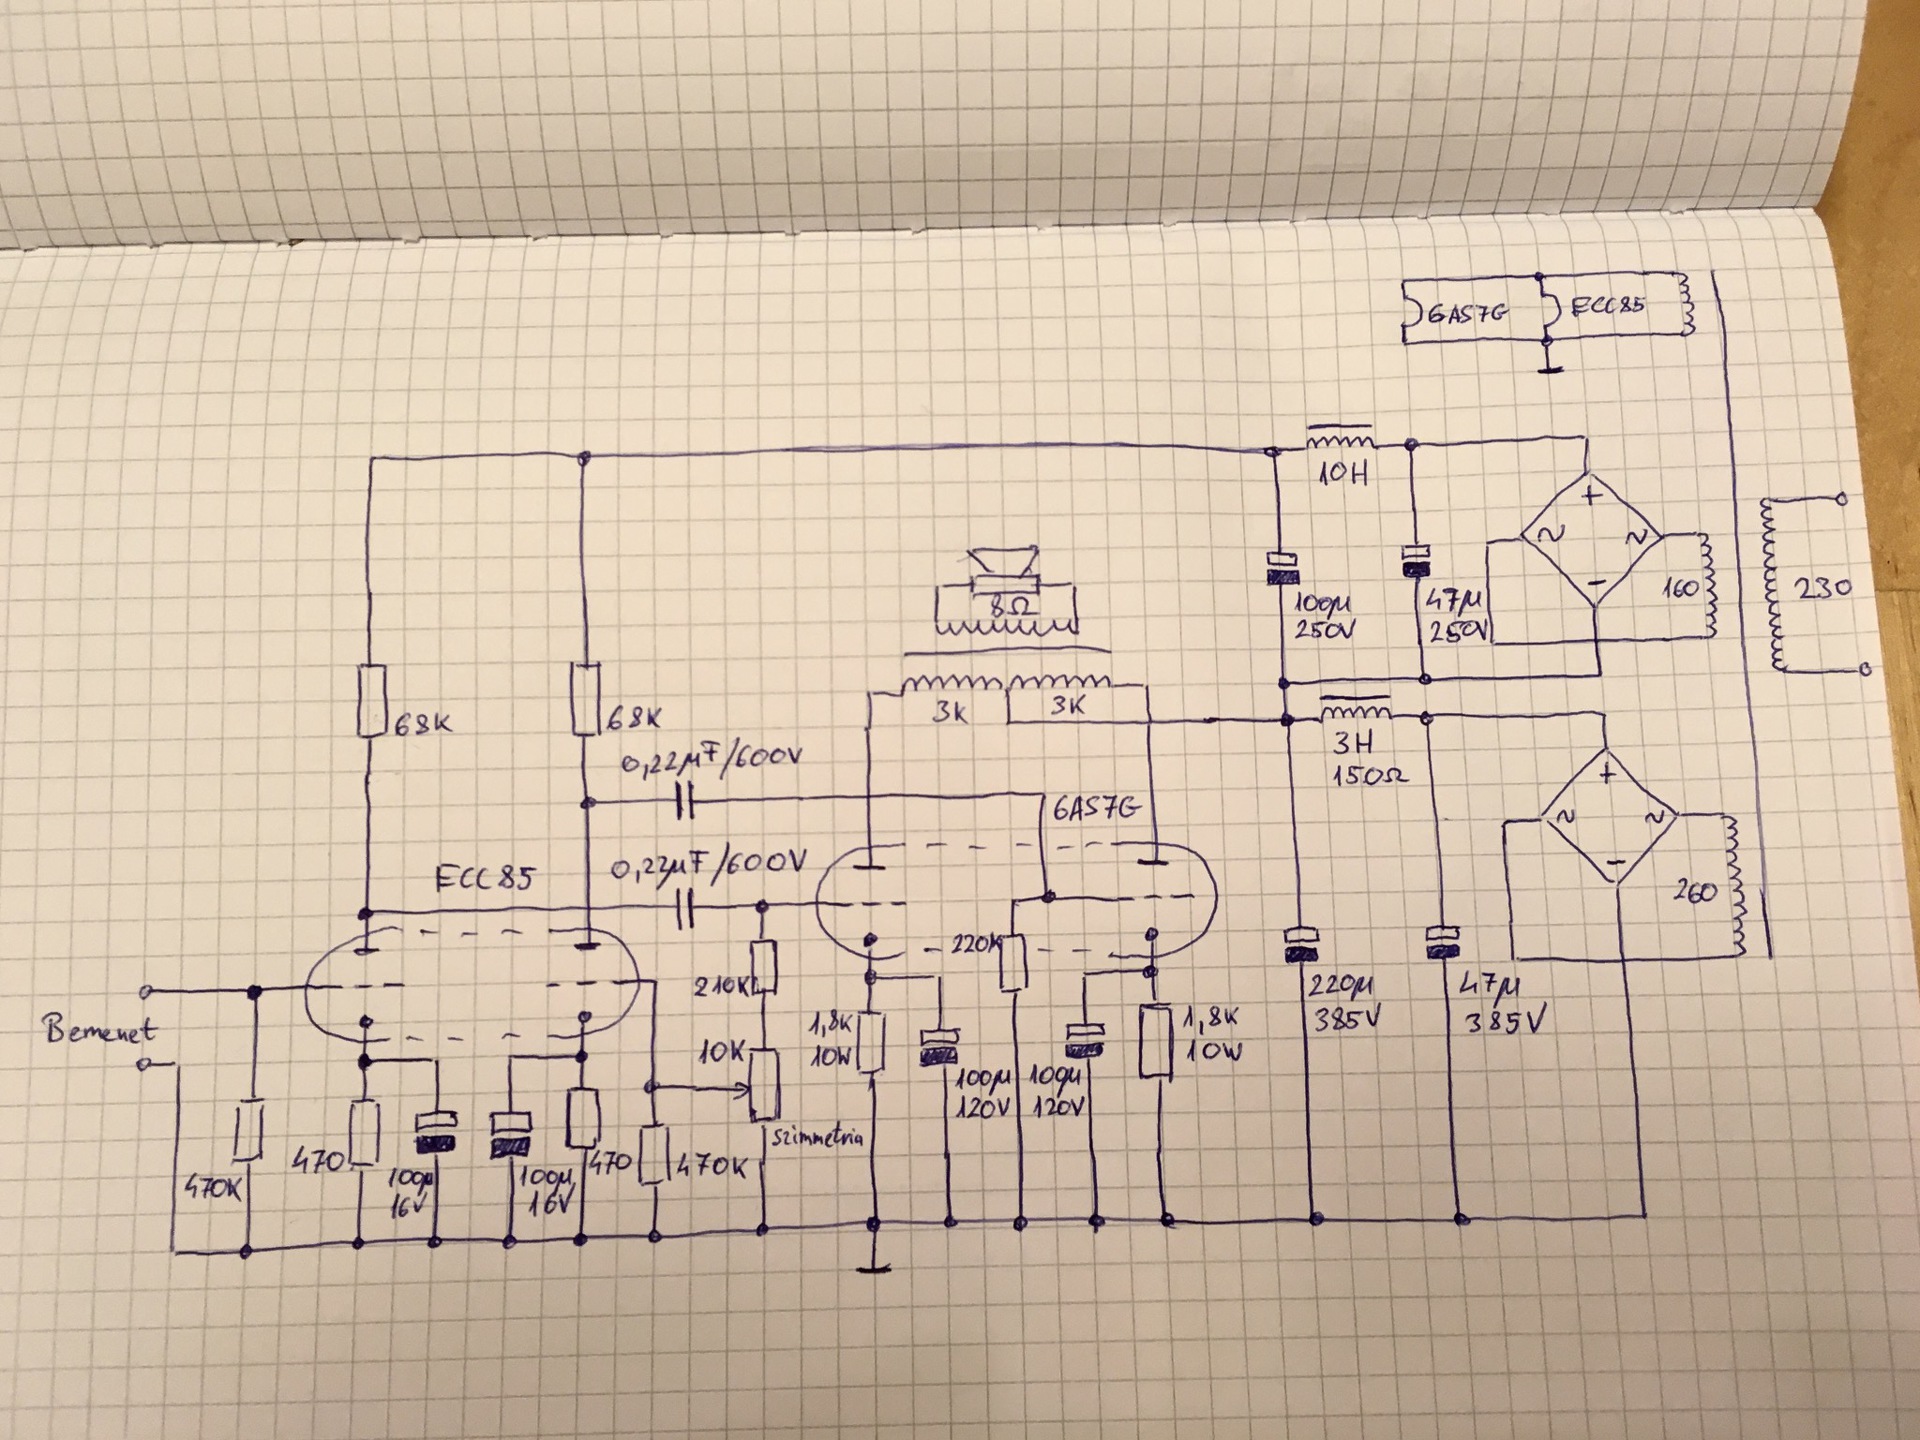 6AS7G
ECC85
10H
+
~
~
-
160
230
100µ
250V
47µ
250V
8Ω
3K
3K
68K
68K
3H
150Ω
+
~
~
-
260
0,22µF/600V
6AS7G
0,22µF/600V
ECC85
220K
210K
220µ
385V
47µ
385V
Bemenet
1,8K
10W
10K
1,8K
10W
100µ
120V
100µ
120V
szimmetria
470K
470
100µ
16V
100µ
16V
470
470K